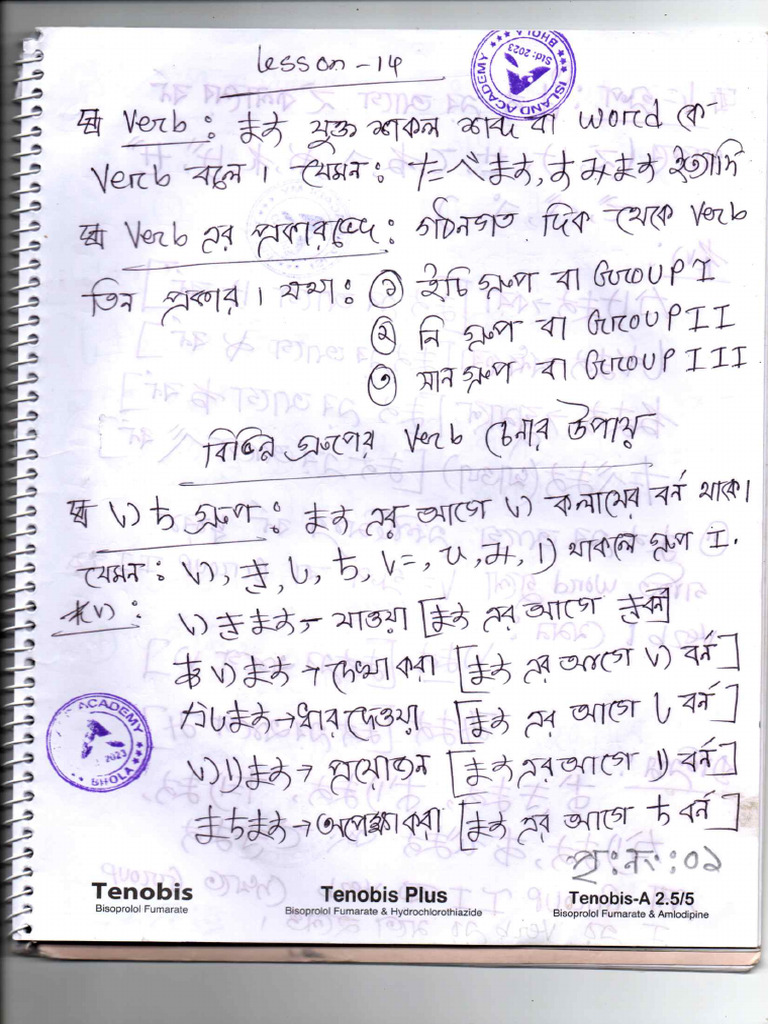 Lesson - 14
ISLAND ACADEMY
Std: 2023
BHOLA
Verb : ます যুক্ত শকল শব্দ বা word কে
Verb বলে। যেমন : たべます, みます ইত্যাদি
Verb এর প্রকারভেদ : গঠনগত দিক থেকে Verb
তিন প্রকার। যথা : ১ ইচি গ্রুপ বা Group I
২ নি গ্রুপ বা Group II
৩ সান গ্রুপ বা Group III
বিভিন্ন গ্রুপের Verb চেনার উপায়
いち গ্রুপ : ます এর আগে い কলামের বর্ন থাকে।
যেমন : い, き, し, ち, に, ひ, み, り থাকলে গ্রুপ I.
れい : いきます → যাওয়া [ます এর আগে きবর্ন]
あいます → দেখা করা [ます এর আগে い বর্ন]
かします → ধার দেওয়া [ます এর আগে し বর্ন]
いります → প্রয়োজন [ます এর আগে り বর্ন]
まちます → অপেক্ষা করা [ます এর আগে ち বর্ন]
ACADEMY
2023
BHOLA
পৃ: নং : ০১
Tenobis
Bisoprolol Fumarate
Tenobis Plus
Bisoprolol Fumarate & Hydrochlorothiazide
Tenobis-A 2.5/5
Bisoprolol Fumarate & Amlodipine